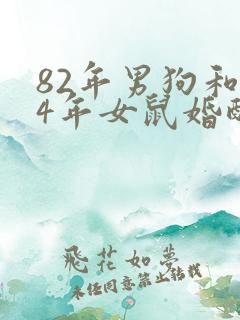 82年男狗和
4年女鼠婚
飛花如夢
未经同意禁止转载